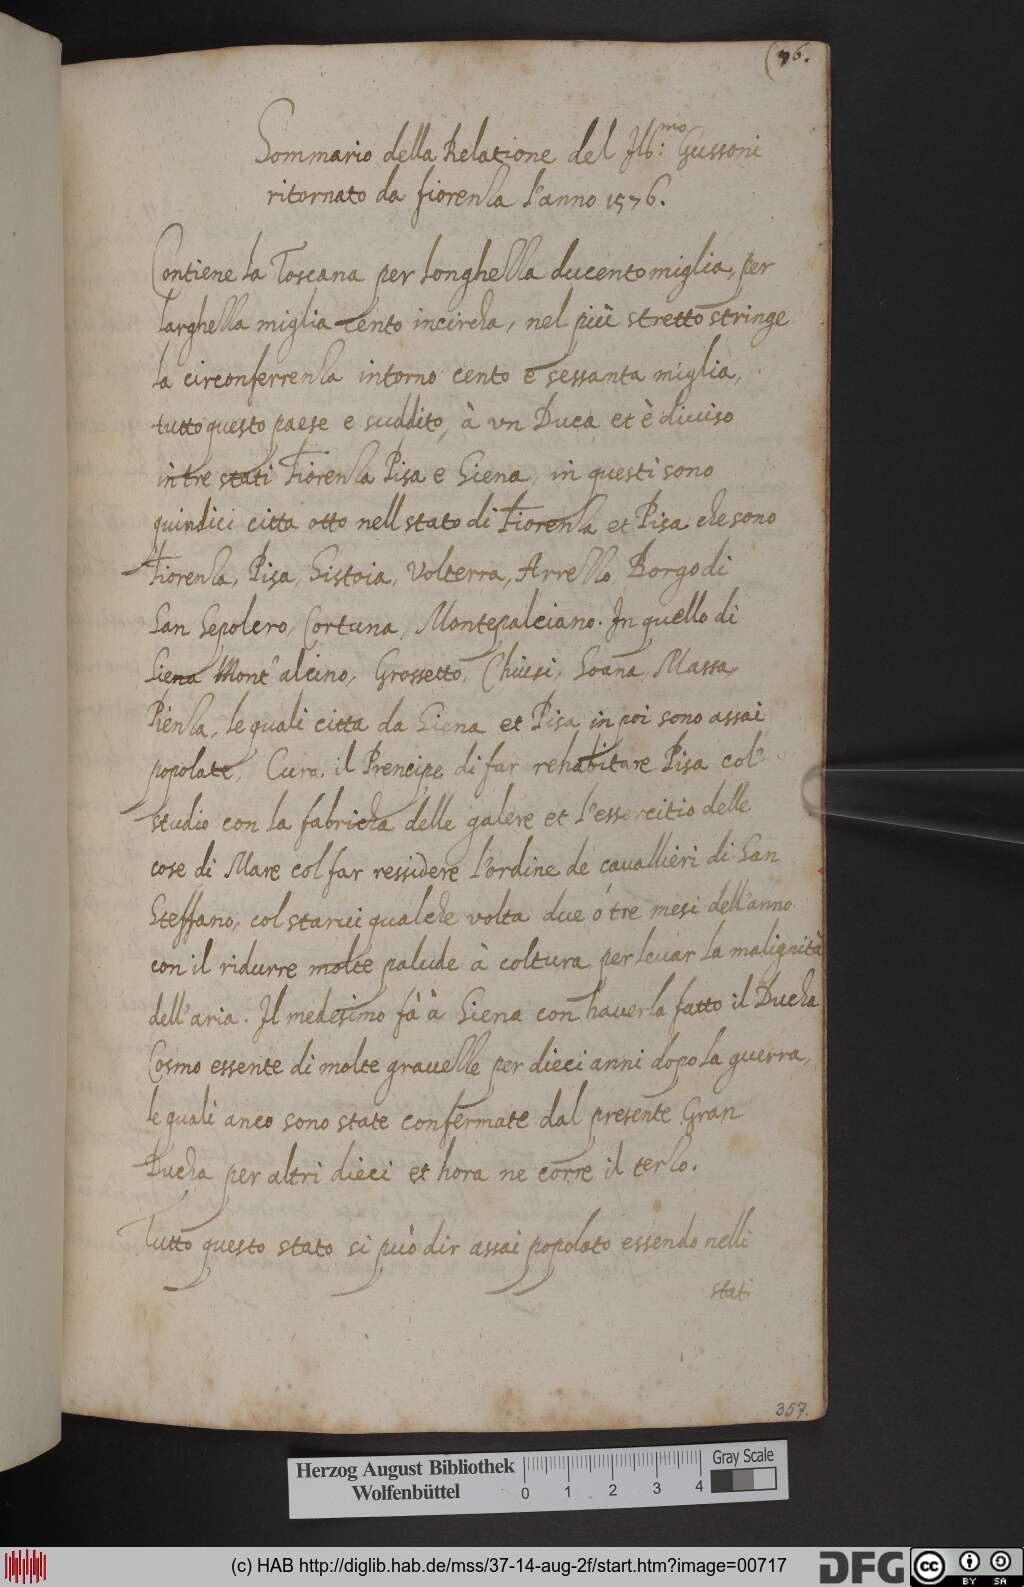 (76.
Sommario della Relatione del Ill:mo Gussoni
ritornato da fiorenza l'anno 1576.
Contiene la Toscana per longhezza ducento miglia, per
larghezza miglia cento incircha, nel più stretto stringe
la circonferrenza intorno cento e sessanta miglia,
tutto questo paese e suddito, à vn Duca et è diuiso
in tre stati Fiorenza Pisa e Siena, in questi sono
quindici citta otto nell stato di Fiorenza et Pisa che sono
Fiorenza, Pisa, Pistoia, Volterra, Arrezzo Borgo di
San Sepolcro, Cortuna, Montepalciano. In quello di
Siena Mont'alcino, Grossetto, Chiusi, Soana, Massa,
Pienza, le quali citta da Siena et Pisa in poi sono assai
popolate, Cura il Prencipe di far rehabitare Pisa col'
studio con la fabricha delle galere et l'essercitio delle
cose di Mare col far ressidere l'ordine de cavallieri di San
Steffano, col starui qualche volta due ó tre mesi dell'anno
con il ridurre molte palude à coltura per leuar la malignità
dell'aria. Il medesimo fà à Siena con hauerla fatto il Ducha
Cosmo essente di molte grauezze per dieci anni dopo la guerra,
le quali anco sono state confermate dal presente Gran
Ducha per altri dieci et hora ne corre il terzo.
Tutto questo stato si può dir assai popolato essendo nelli
stati
357.
Herzog August Bibliothek
Wolfenbüttel
0 1 2 3 4
Gray Scale
(c) HAB http://diglib.hab.de/mss/37-14-aug-2f/start.htm?image=00717
DFG
cc BY SA